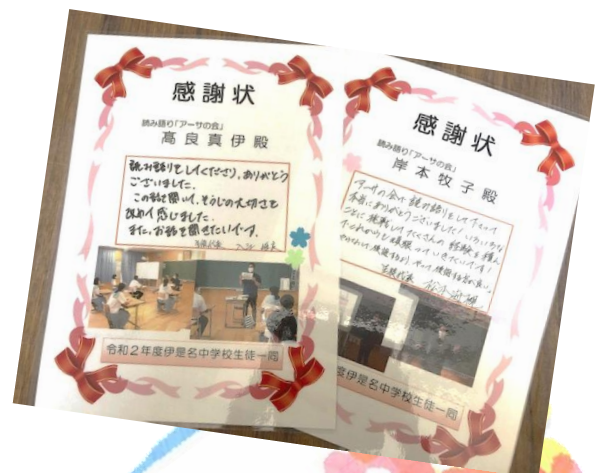 感謝状
読み語り「アーサの会」
高良真伊殿
読み語りをしてくださり、ありがとう
ございました。
この話を聞いて、そうじの大切さを
改めて感じました。
また、お話を聞きたいです。
生徒代表
令和2年度伊是名中学校生徒一同
感謝状
読み語り「アーサの会」
岸本牧子殿
アーサの会で読み語りをして下さって
本当にありがとうございました！いろいろな
ことに挑戦してたくさんの経験を積ん
でこれからも頑張っていきたいです！
生徒代表
度伊是名中学校生徒一同